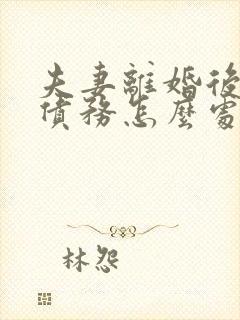 夫妻離婚後
債務怎麼處
林怨